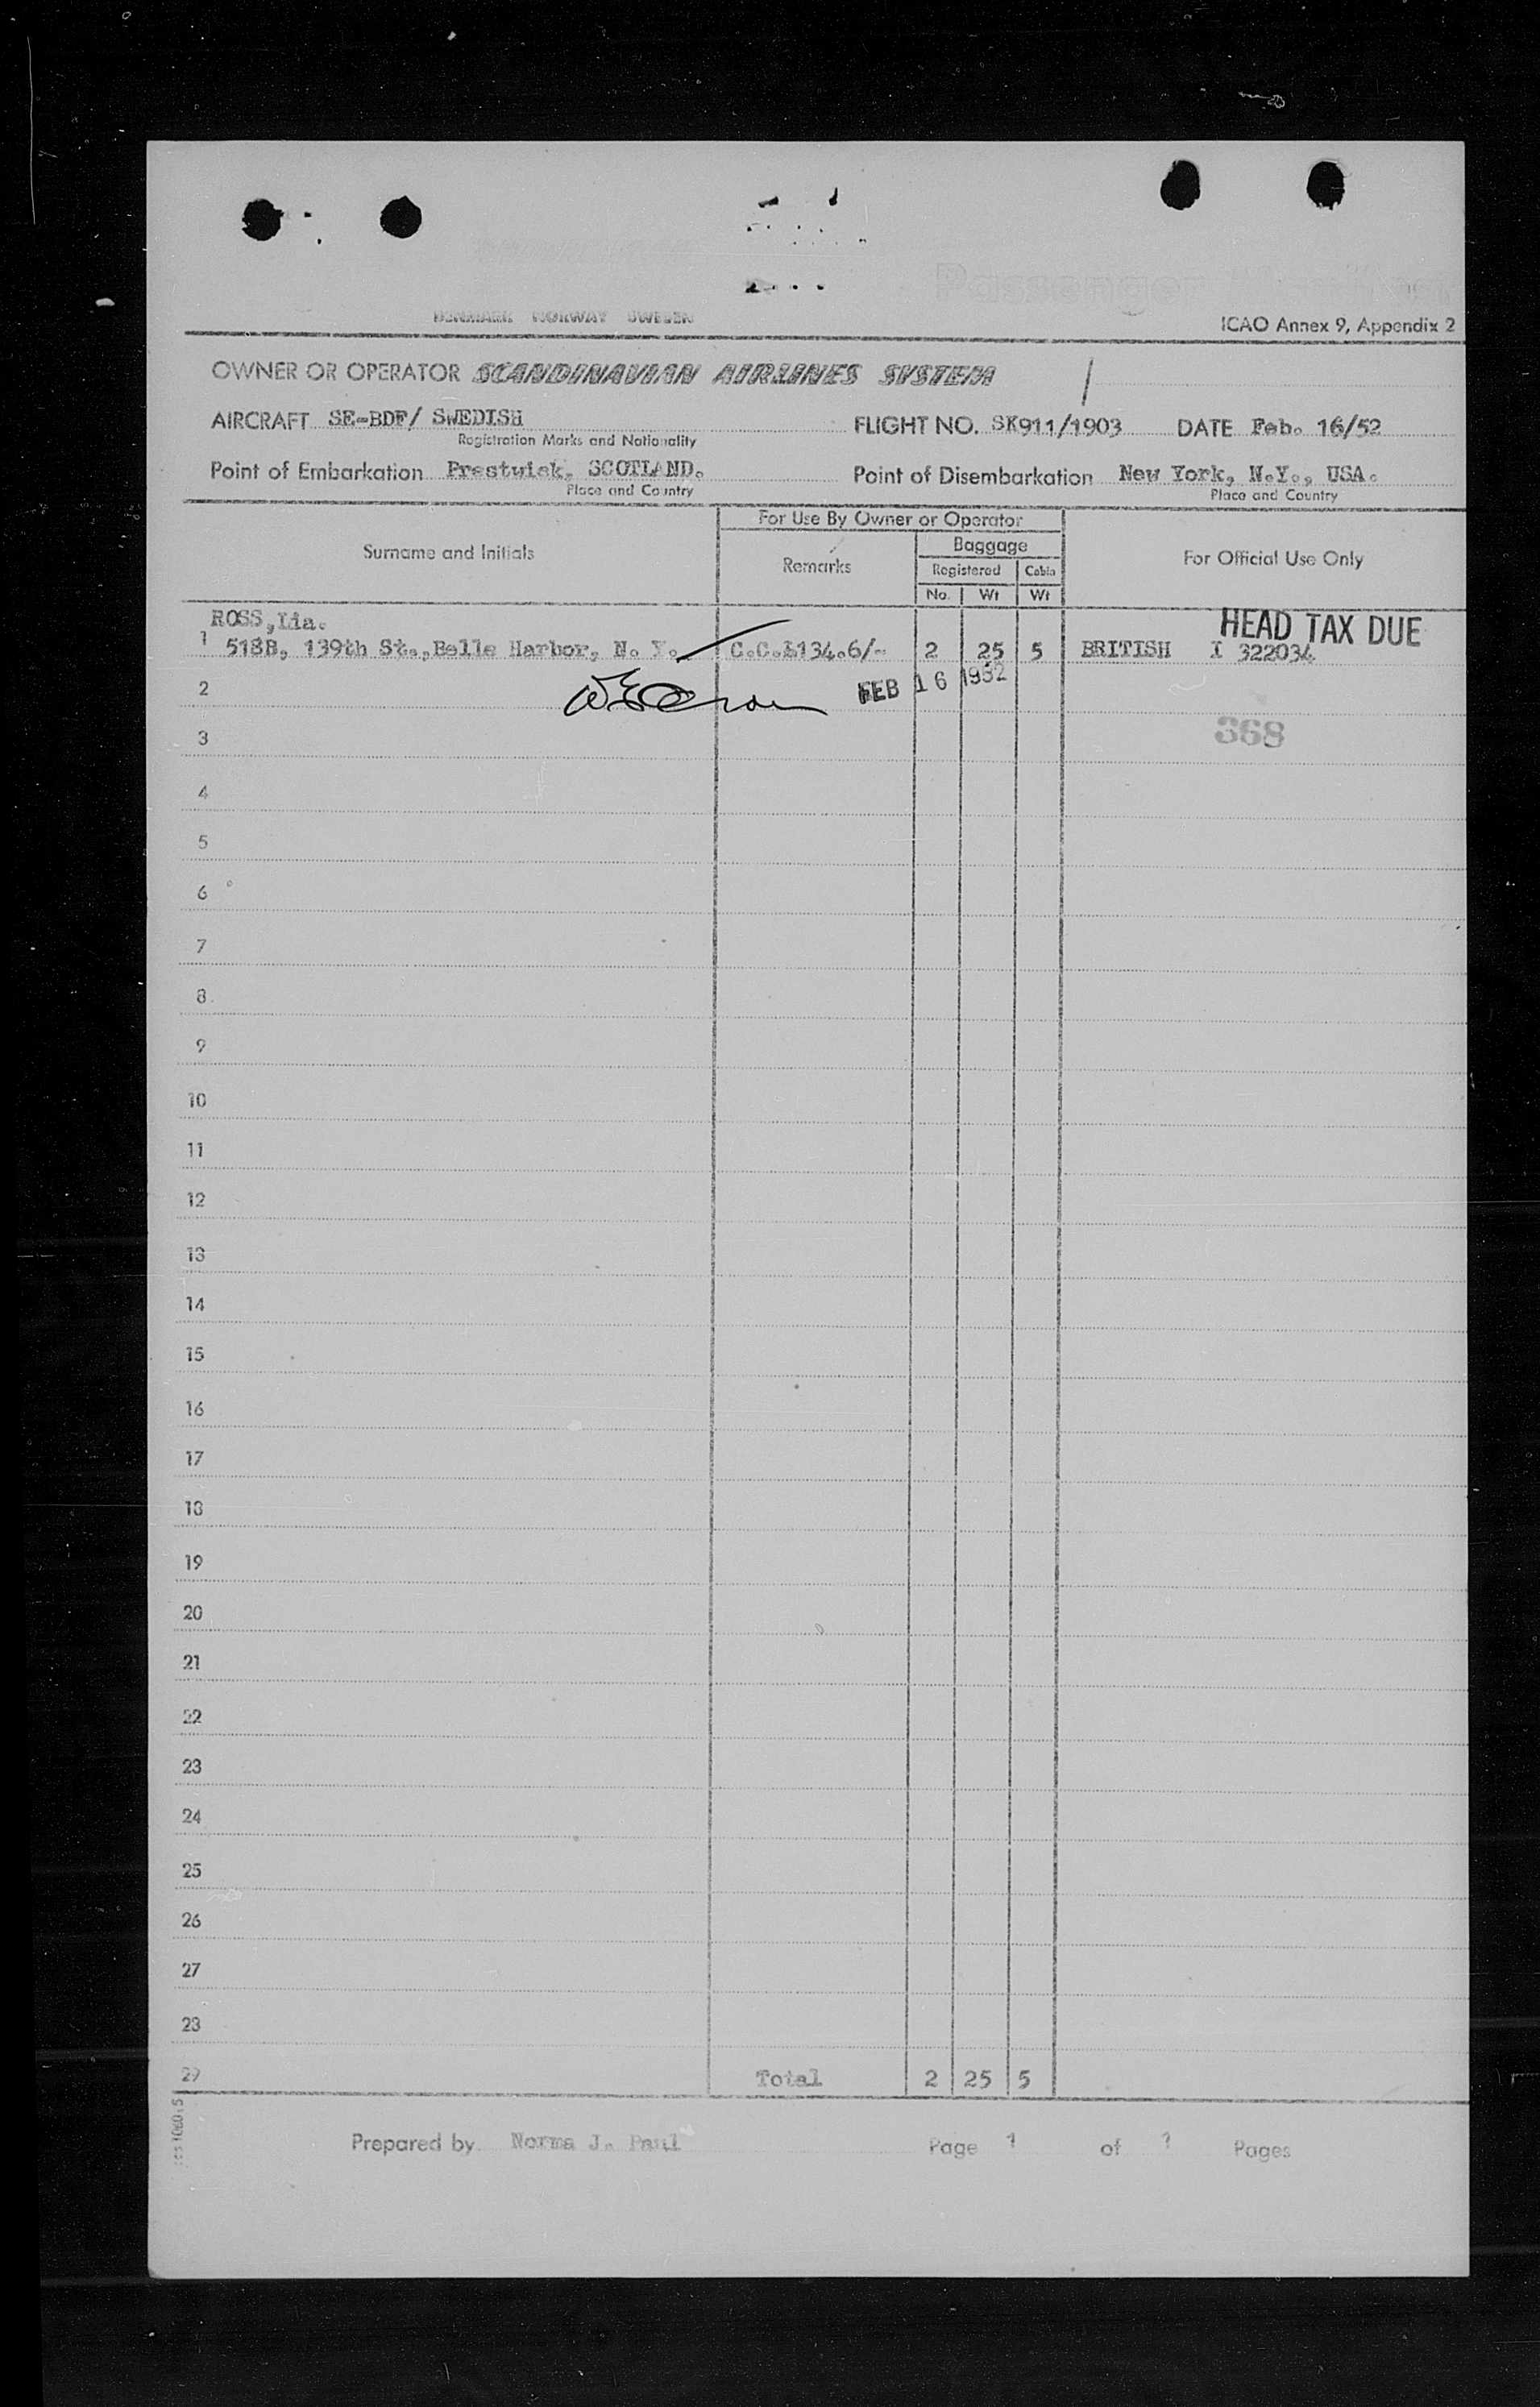 Passenger
DENMARK NORWAY SWEDEN
ICAO Annex 9, Appendix 2
OWNER OR OPERATOR SCANDINAVIAN AIRLINES SYSTEM
AIRCRAFT SE-BDF/ SWEDISH FLIGHT NO. SK911/1903 DATE Feb. 16/52
Registration Marks and Nationality
Point of Embarkation Prestwick, SCOTLAND. Point of Disembarkation New York, N.Y., USA.
Place and Country Place and Country
For Use By Owner or Operator
Surname and Initials Remarks Baggage For Official Use Only
Registered Cabin
No. Wt Wt
ROSS, Lia. HEAD TAX DUE
1 518B, 139th St., Belle Harbor, N. Y. C.C.£134.6/- 2 25 5 BRITISH I 322034
2 FEB 16 1952
3 368
4
5
6
7
8
9
10
11
12
13
14
15
16
17
18
19
20
21
22
23
24
25
26
27
28
29 Total 2 25 5
Prepared by Norma J. Paul Page 1 of Pages